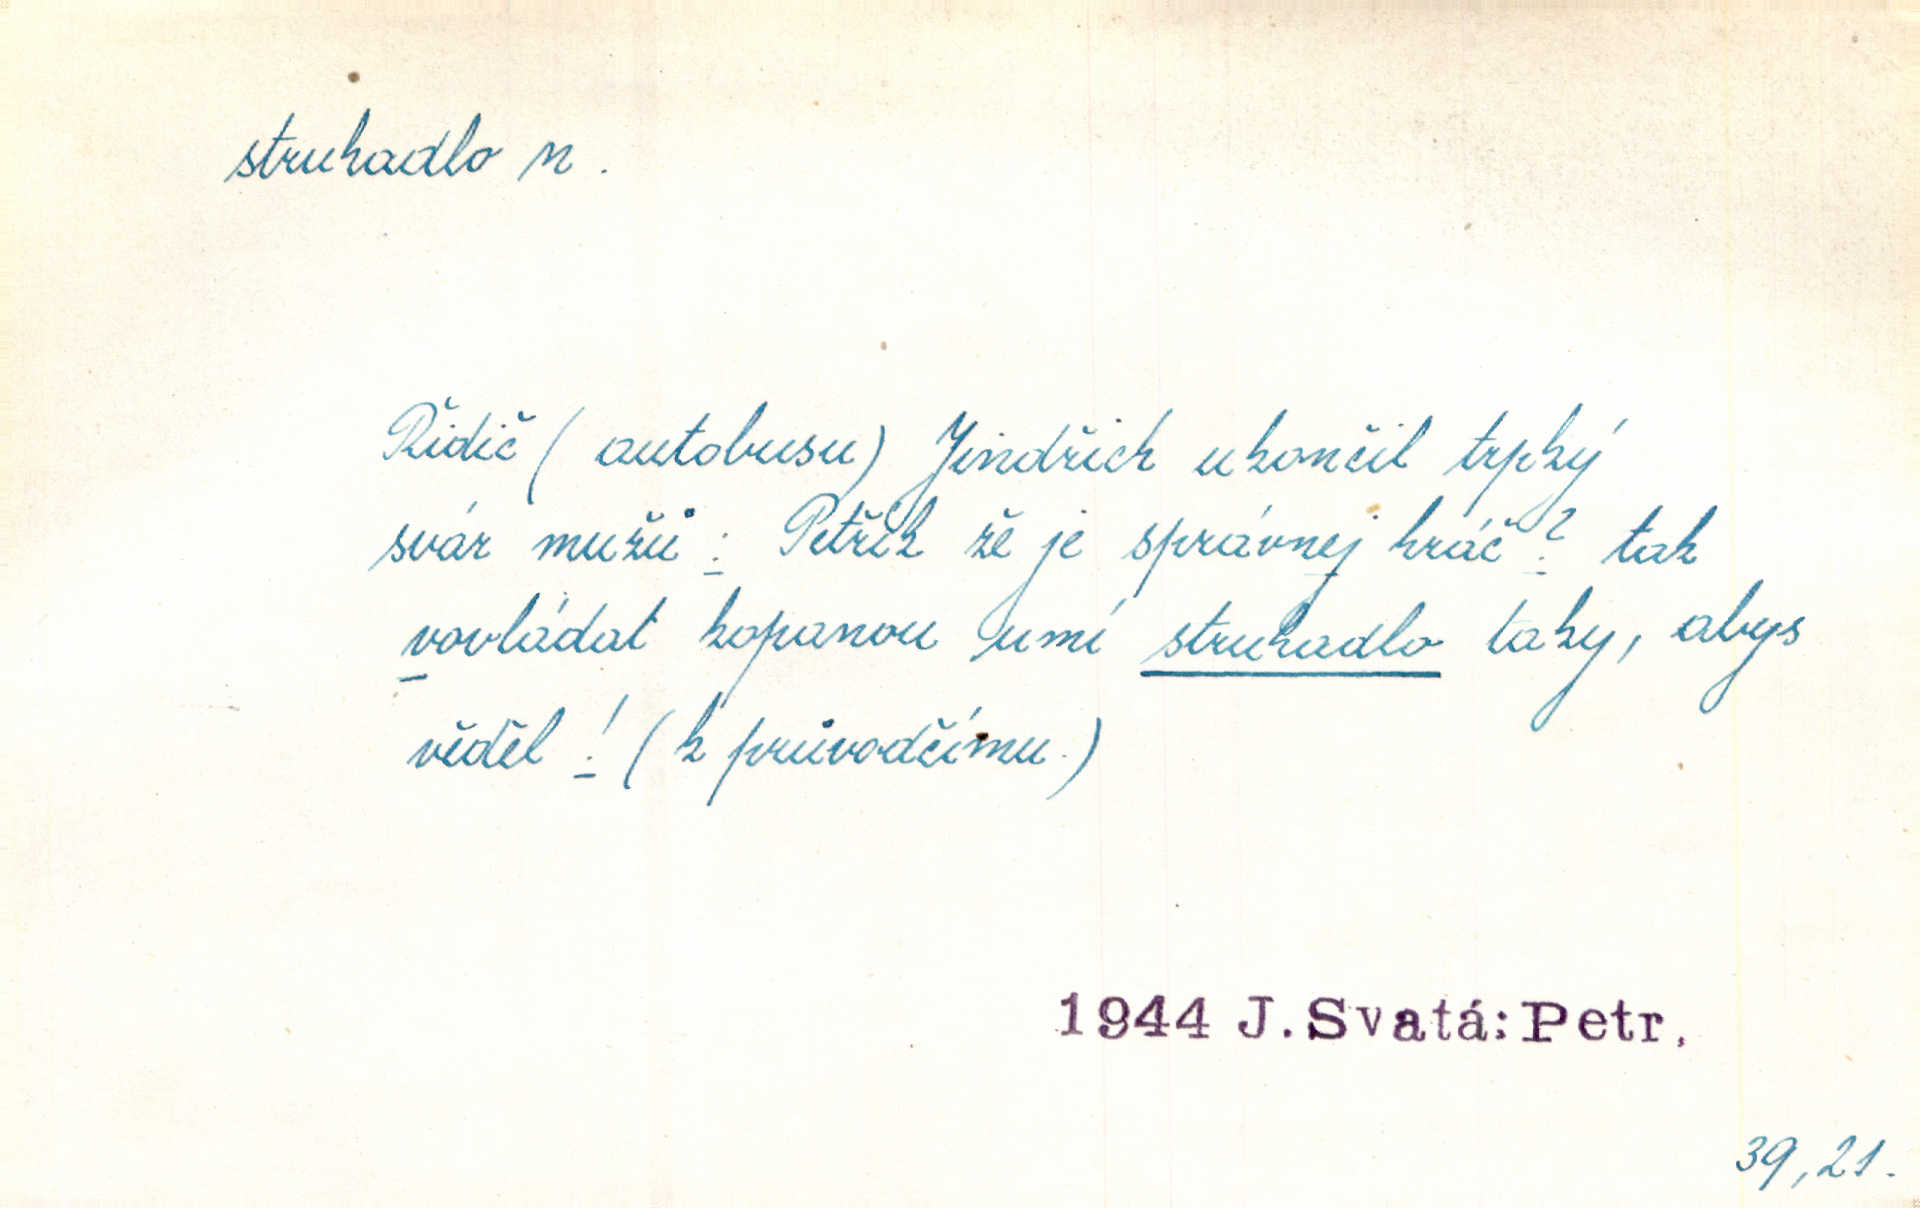 struhadlo n.
Řidič (autobusu) Jindřich ukončil trpký
svár mužů: Petřík že je správnej hráč? tak
vovládat kopanou umí struhadlo taky, abys
věděl! (k průvodčímu.)
1944 J. Svatá: Petr,
39, 21.